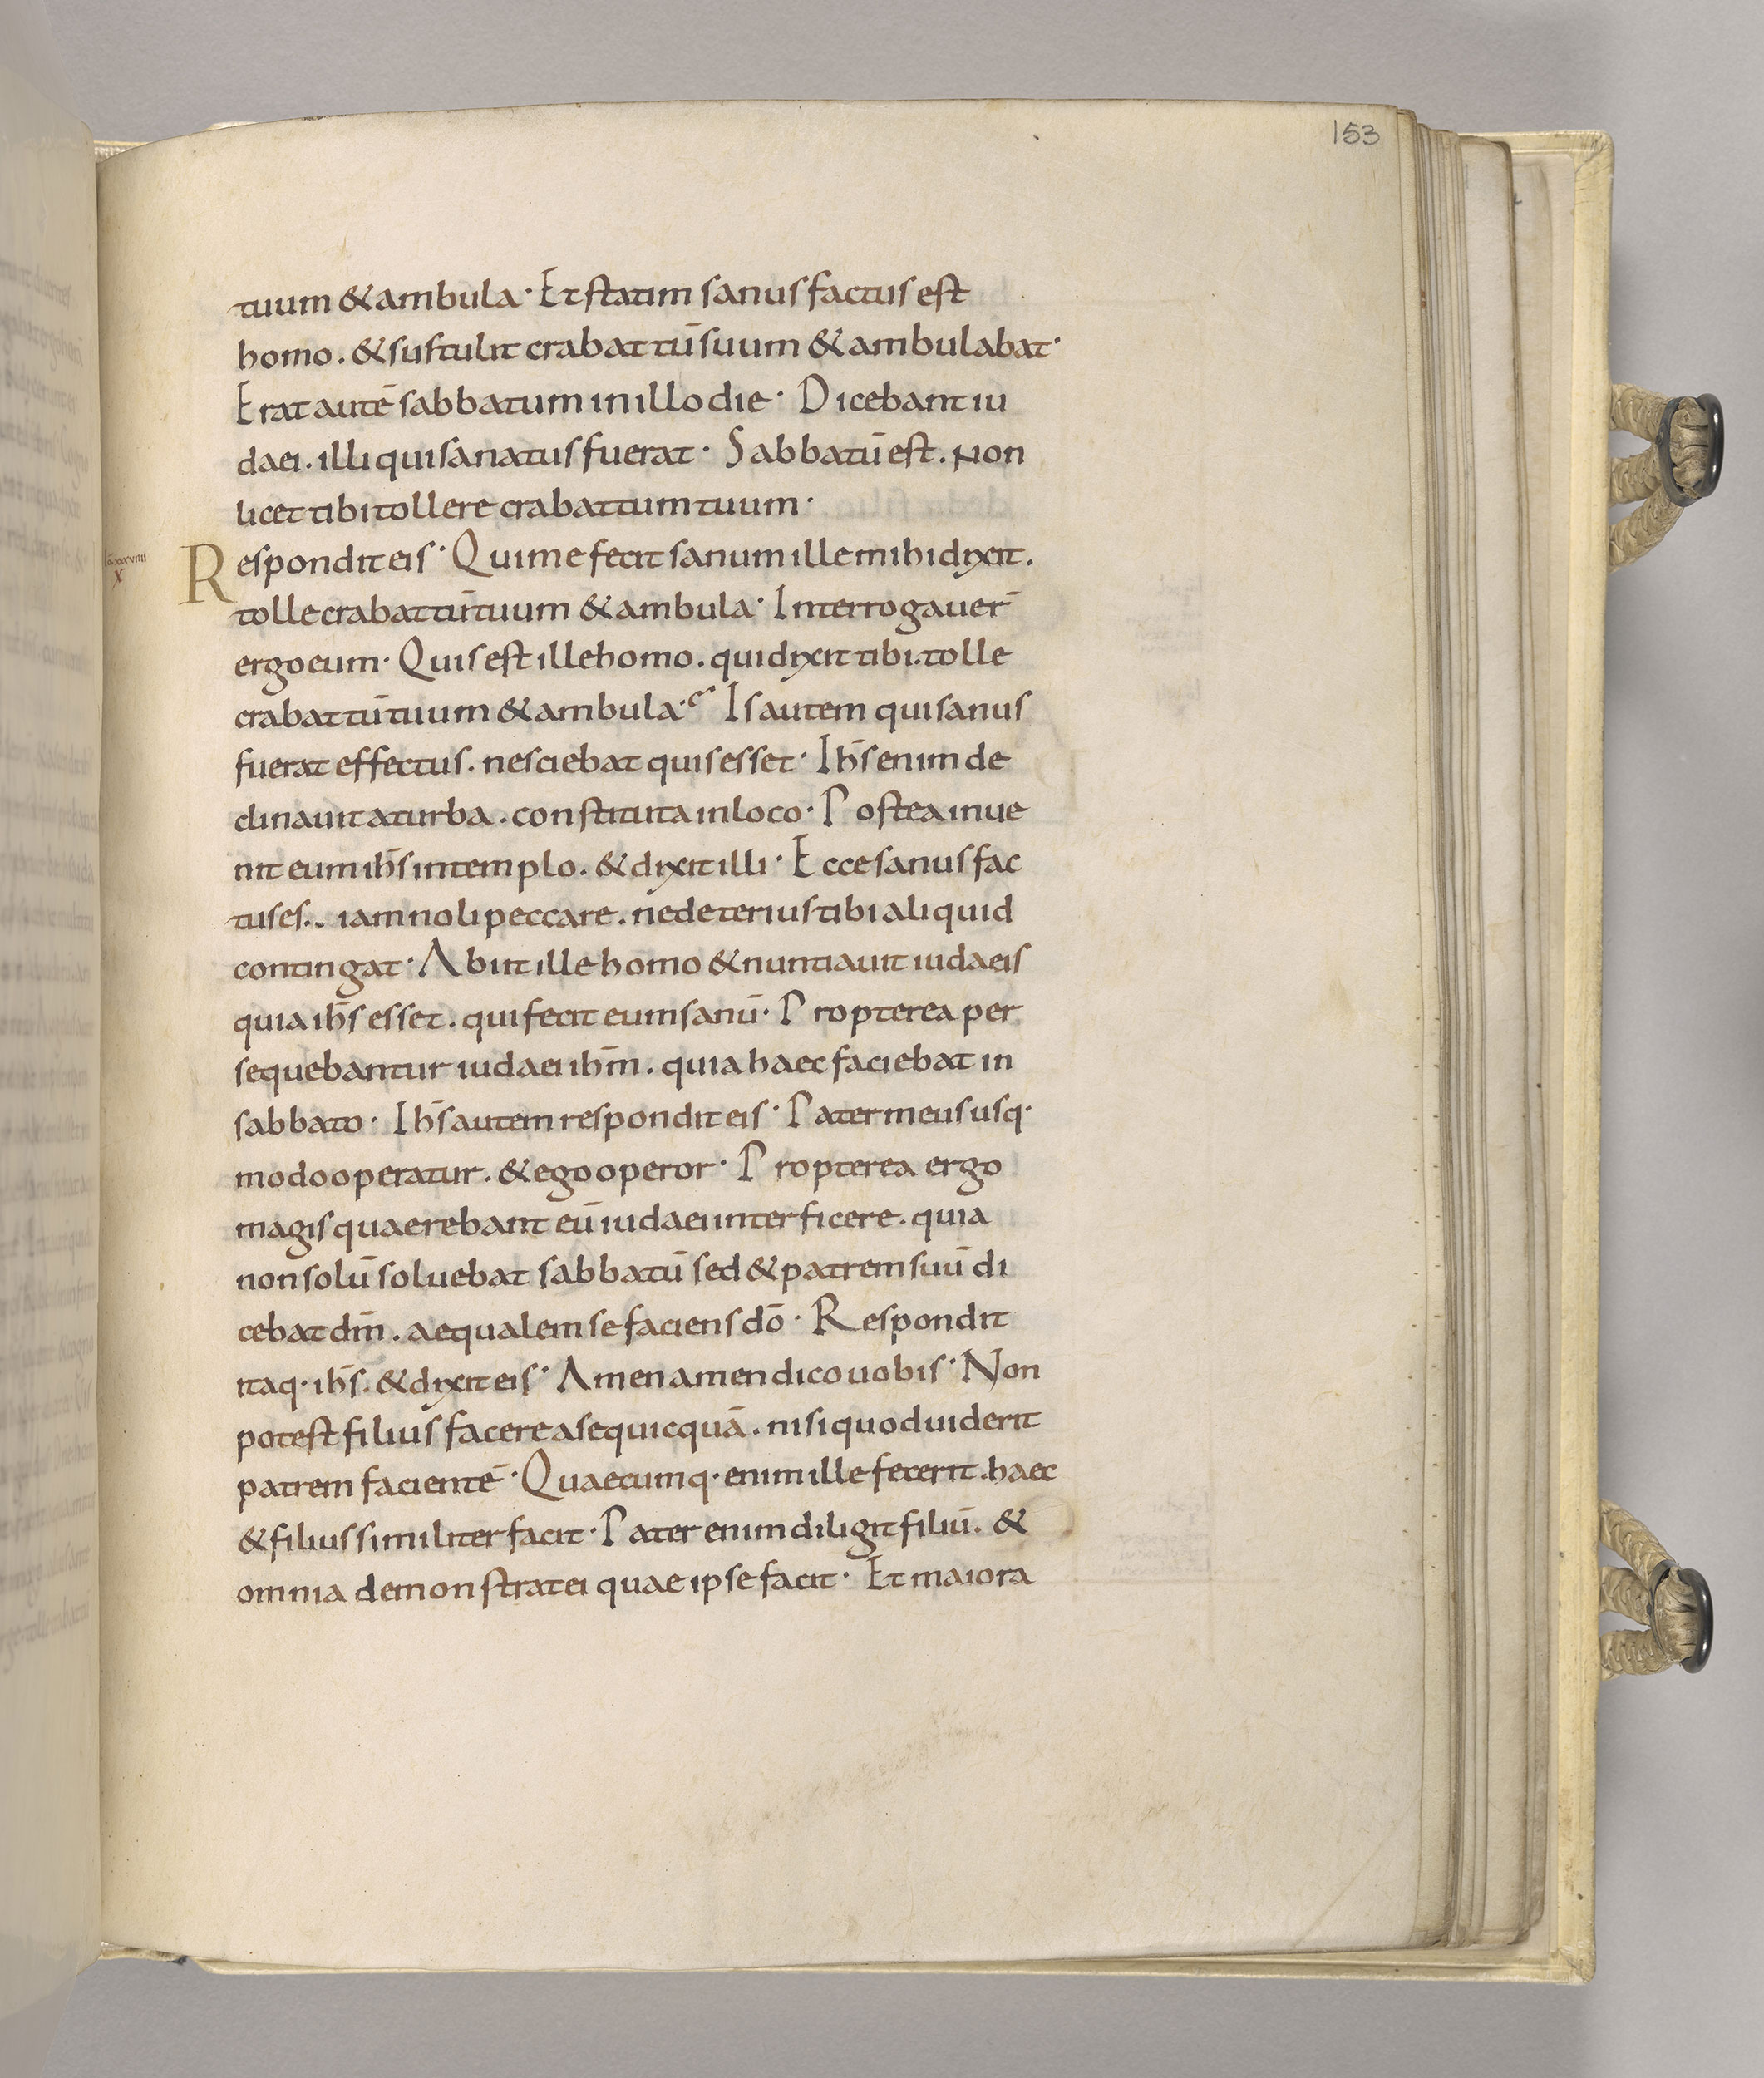 153
tuum & ambula· Et statim sanus factus est
homo. & sustulit crabattū suum & ambulabat·
Erat autē sabbatum in illo die· Dicebant iu
daei. illi qui sanatus fuerat· Sabbatū est. Non
licet tibi tollere crabattum tuum·
Respondit eis· Qui me fecit sanum ille mihi dixit.
tolle crabattū tuum & ambula· Interrogauer̄
ergo eum· Quis est ille homo. qui dixit tibi. tolle
crabattū tuum & ambula· Is autem qui sanus
fuerat effectus. nesciebat quis esset· Ih̄s enim de
clinauit a turba. constituta in loco· Postea inue
nit eum ih̄s in templo. & dixit illi· Ecce sanus fac
tus es.. iam noli peccare. ne deterius tibi aliquid
contingat· Abiit ille homo & nuntiauit iudaeis
quia ih̄s esset. qui fecit eum sanū· Propterea per
sequebantur iudaei ih̄m. quia haec faciebat in
sabbato· Ih̄s autem respondit eis· Pater meus usq·
modo operatur. & ego operor· Propterea ergo
magis quaerebant eū iudaei interficere. quia
non solū soluebat sabbatū sed & patrem suū di
cebat dm̄. aequalem se faciens dō· Respondit
itaq· ih̄s. & dixit eis· Amen amen dico uobis· Non
potest filius facere a se quicquā. nisi quod uiderit
patrem facientē· Quaecumq· enim ille fecerit. haec
& filius similiter facit· Pater enim diligit filiū. &
omnia demonstrat ei quae ipse facit· Et maiora